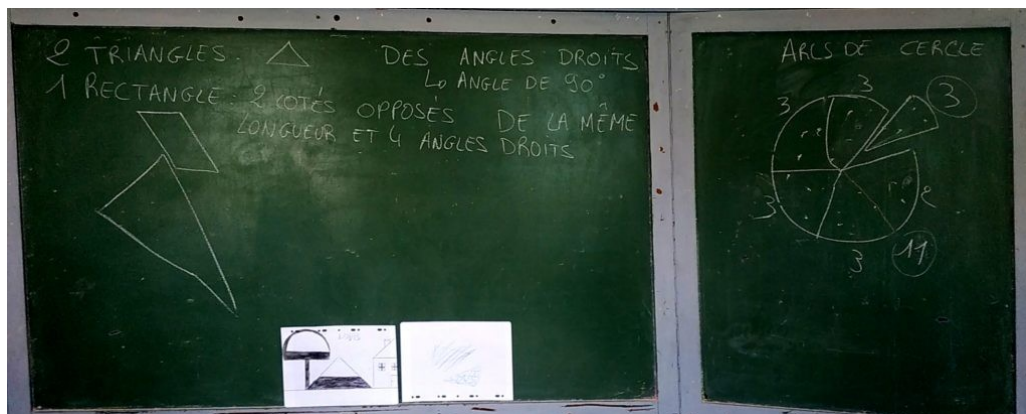 2 TRIANGLES.
DES ANGLES DROITS
↳ ANGLE DE 90°
1 RECTANGLE: 2 COTÉS OPPOSÉS DE LA MÊME
LONGUEUR ET 4 ANGLES DROITS
ARCS DE CERCLE
3
3
3
3
2
3
11